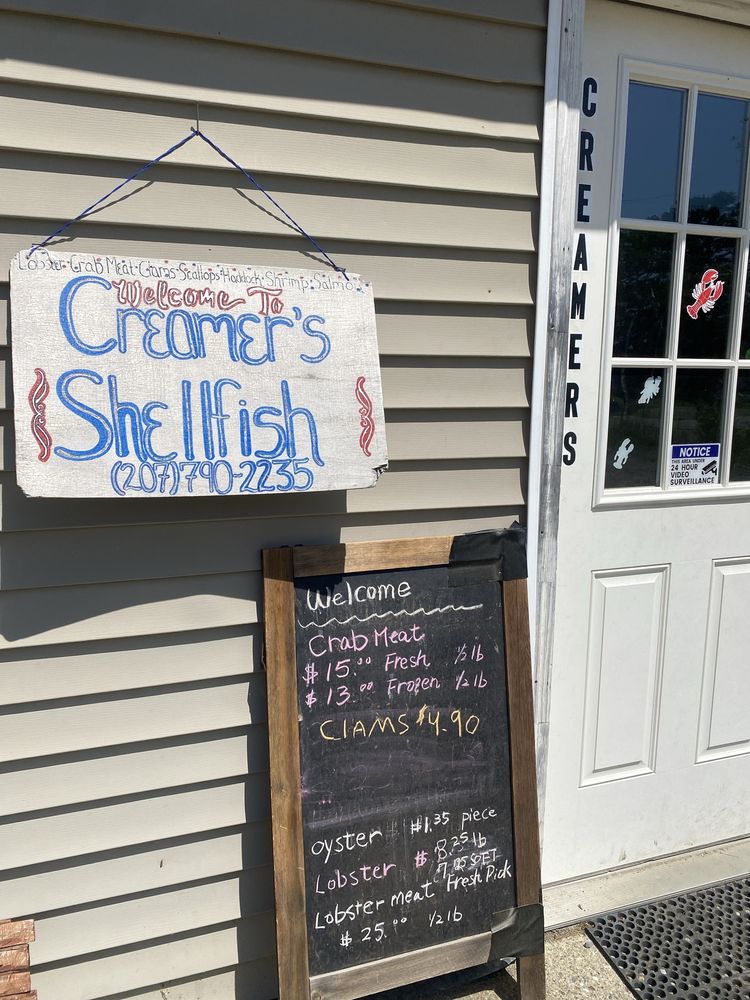 Lobster·Crab Meat·Clams·Scallops·Haddock·Shrimp·Salmo
Welcome To
Creamer's
Shellfish
(207)790-2235
CREAMERS
NOTICE
THIS AREA UNDER
24 HOUR
VIDEO
SURVEILLANCE
Welcome
Crab Meat
$15.00 Fresh ½ lb
$13.00 Frozen ½ lb
CLAMS $4.90
oyster $1.35 piece
Lobster $ 8.25 lb
SOFT
Lobster meat Fresh Pick
$25.00 ½ lb